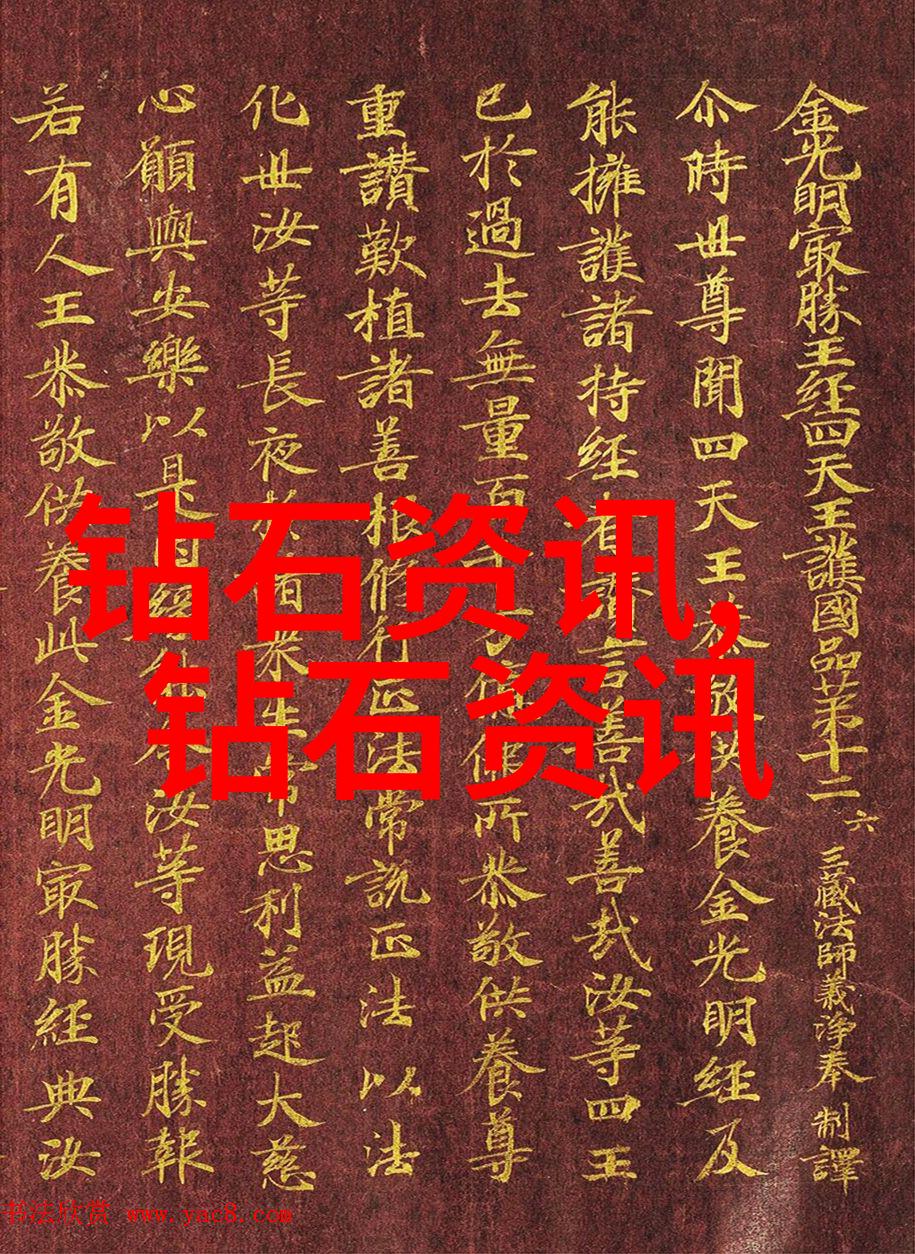 金光明㝡勝王經四天王護國品苐十二 六 三藏法師義淨奉 制譯
尒時世尊聞四天王恭敬供養金光明經及
能擁護諸持經者言善哉善哉汝等四王
已於過去無量百佛所恭敬供養尊
重讚歎植諸善根修行正法常說正法以法
化世汝等長夜於眾生常思利益起大慈
心願與安樂以是因汝等現受勝報
若有人王恭敬供養此金光明㝡勝經典汝
钻石资讯,
钻石资讯
书法欣赏 www.yac8.com